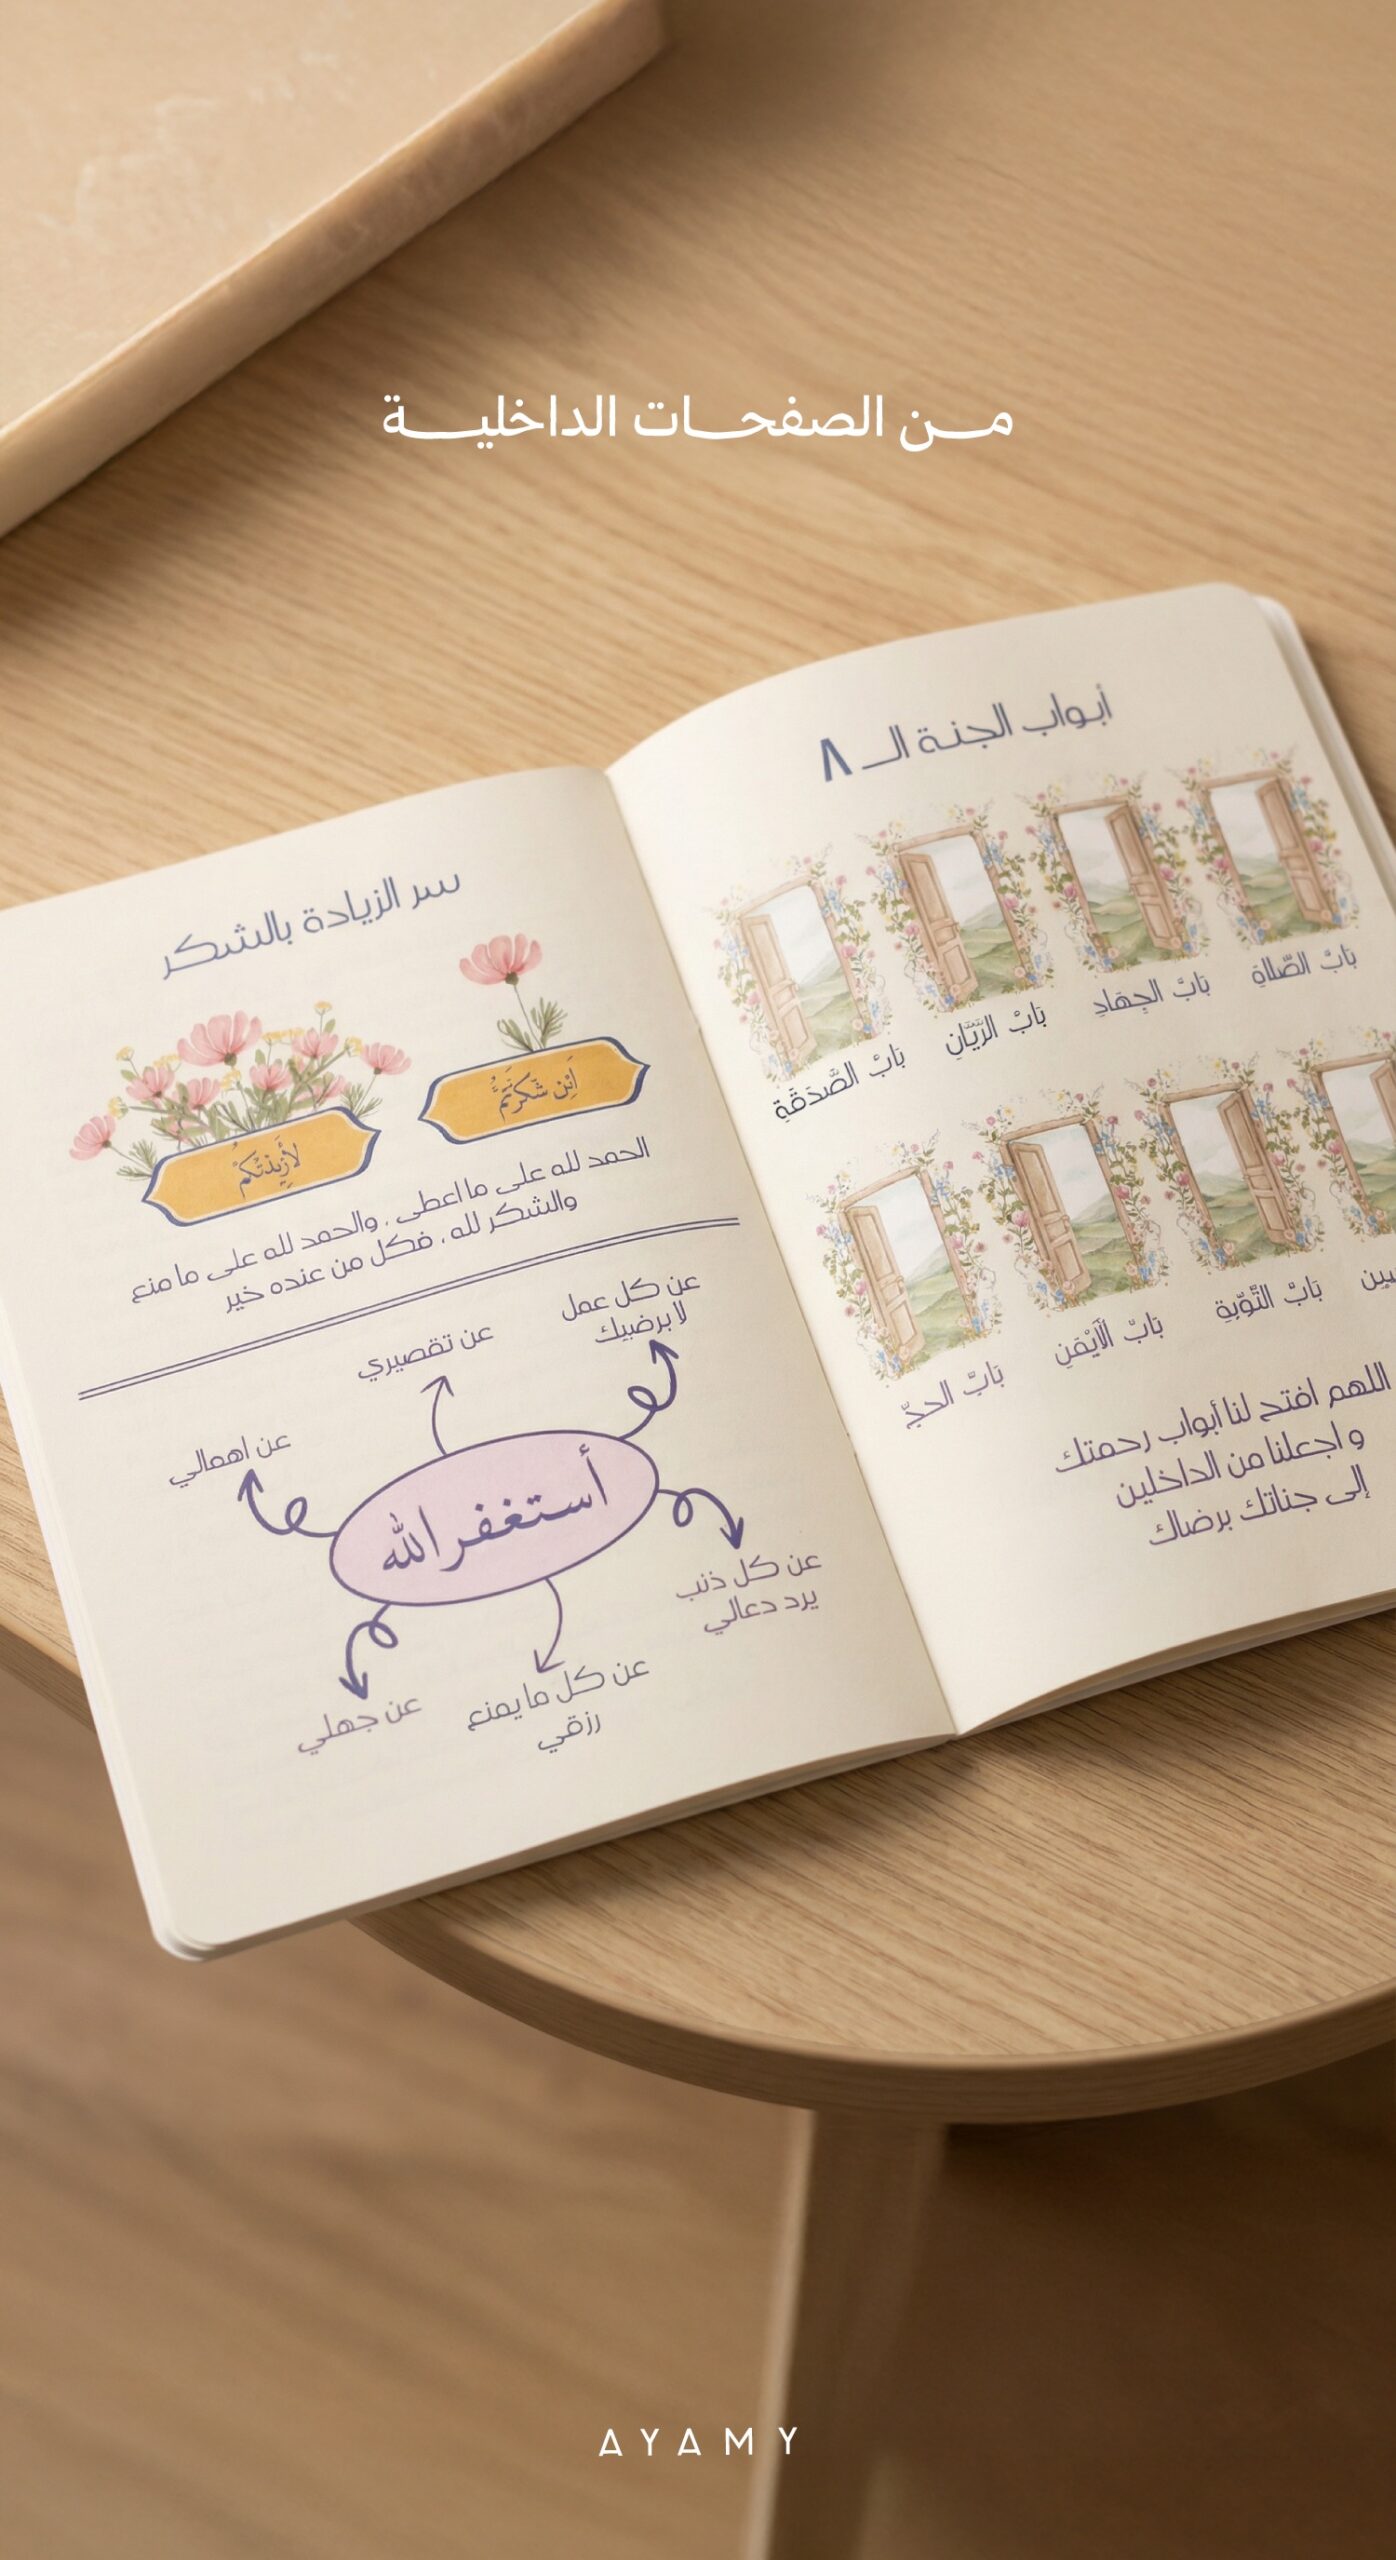 من الصفحات الداخلية
أبواب الجنة الـ ٨
بَابُ الصَّلاةِ
بَابُ الجِهَادِ
بَابُ الرَّيَّانِ
بَابُ الصَّدَقَةِ
بَابُ التَّوْبَةِ
بَابُ الأَيْمَنِ
بَابُ الحجِّ
اللهم افتح لنا أبواب رحمتك
و اجعلنا من الداخلين
إلى جناتك برضاك
سر الزيادة بالشكر
لَئِن شَكَرْتُمْ
لأَزِيدَنَّكُمْ
الحمد لله على ما اعطى . والحمد لله على ما منع
والشكر لله . فكل من عنده خير
عن كل عمل
لا يرضيك
عن تقصيري
عن اهمالي
أستغفر الله
عن كل ذنب
يرد دعائي
عن كل ما يمنع
رزقي
عن جهلي
AYAMY